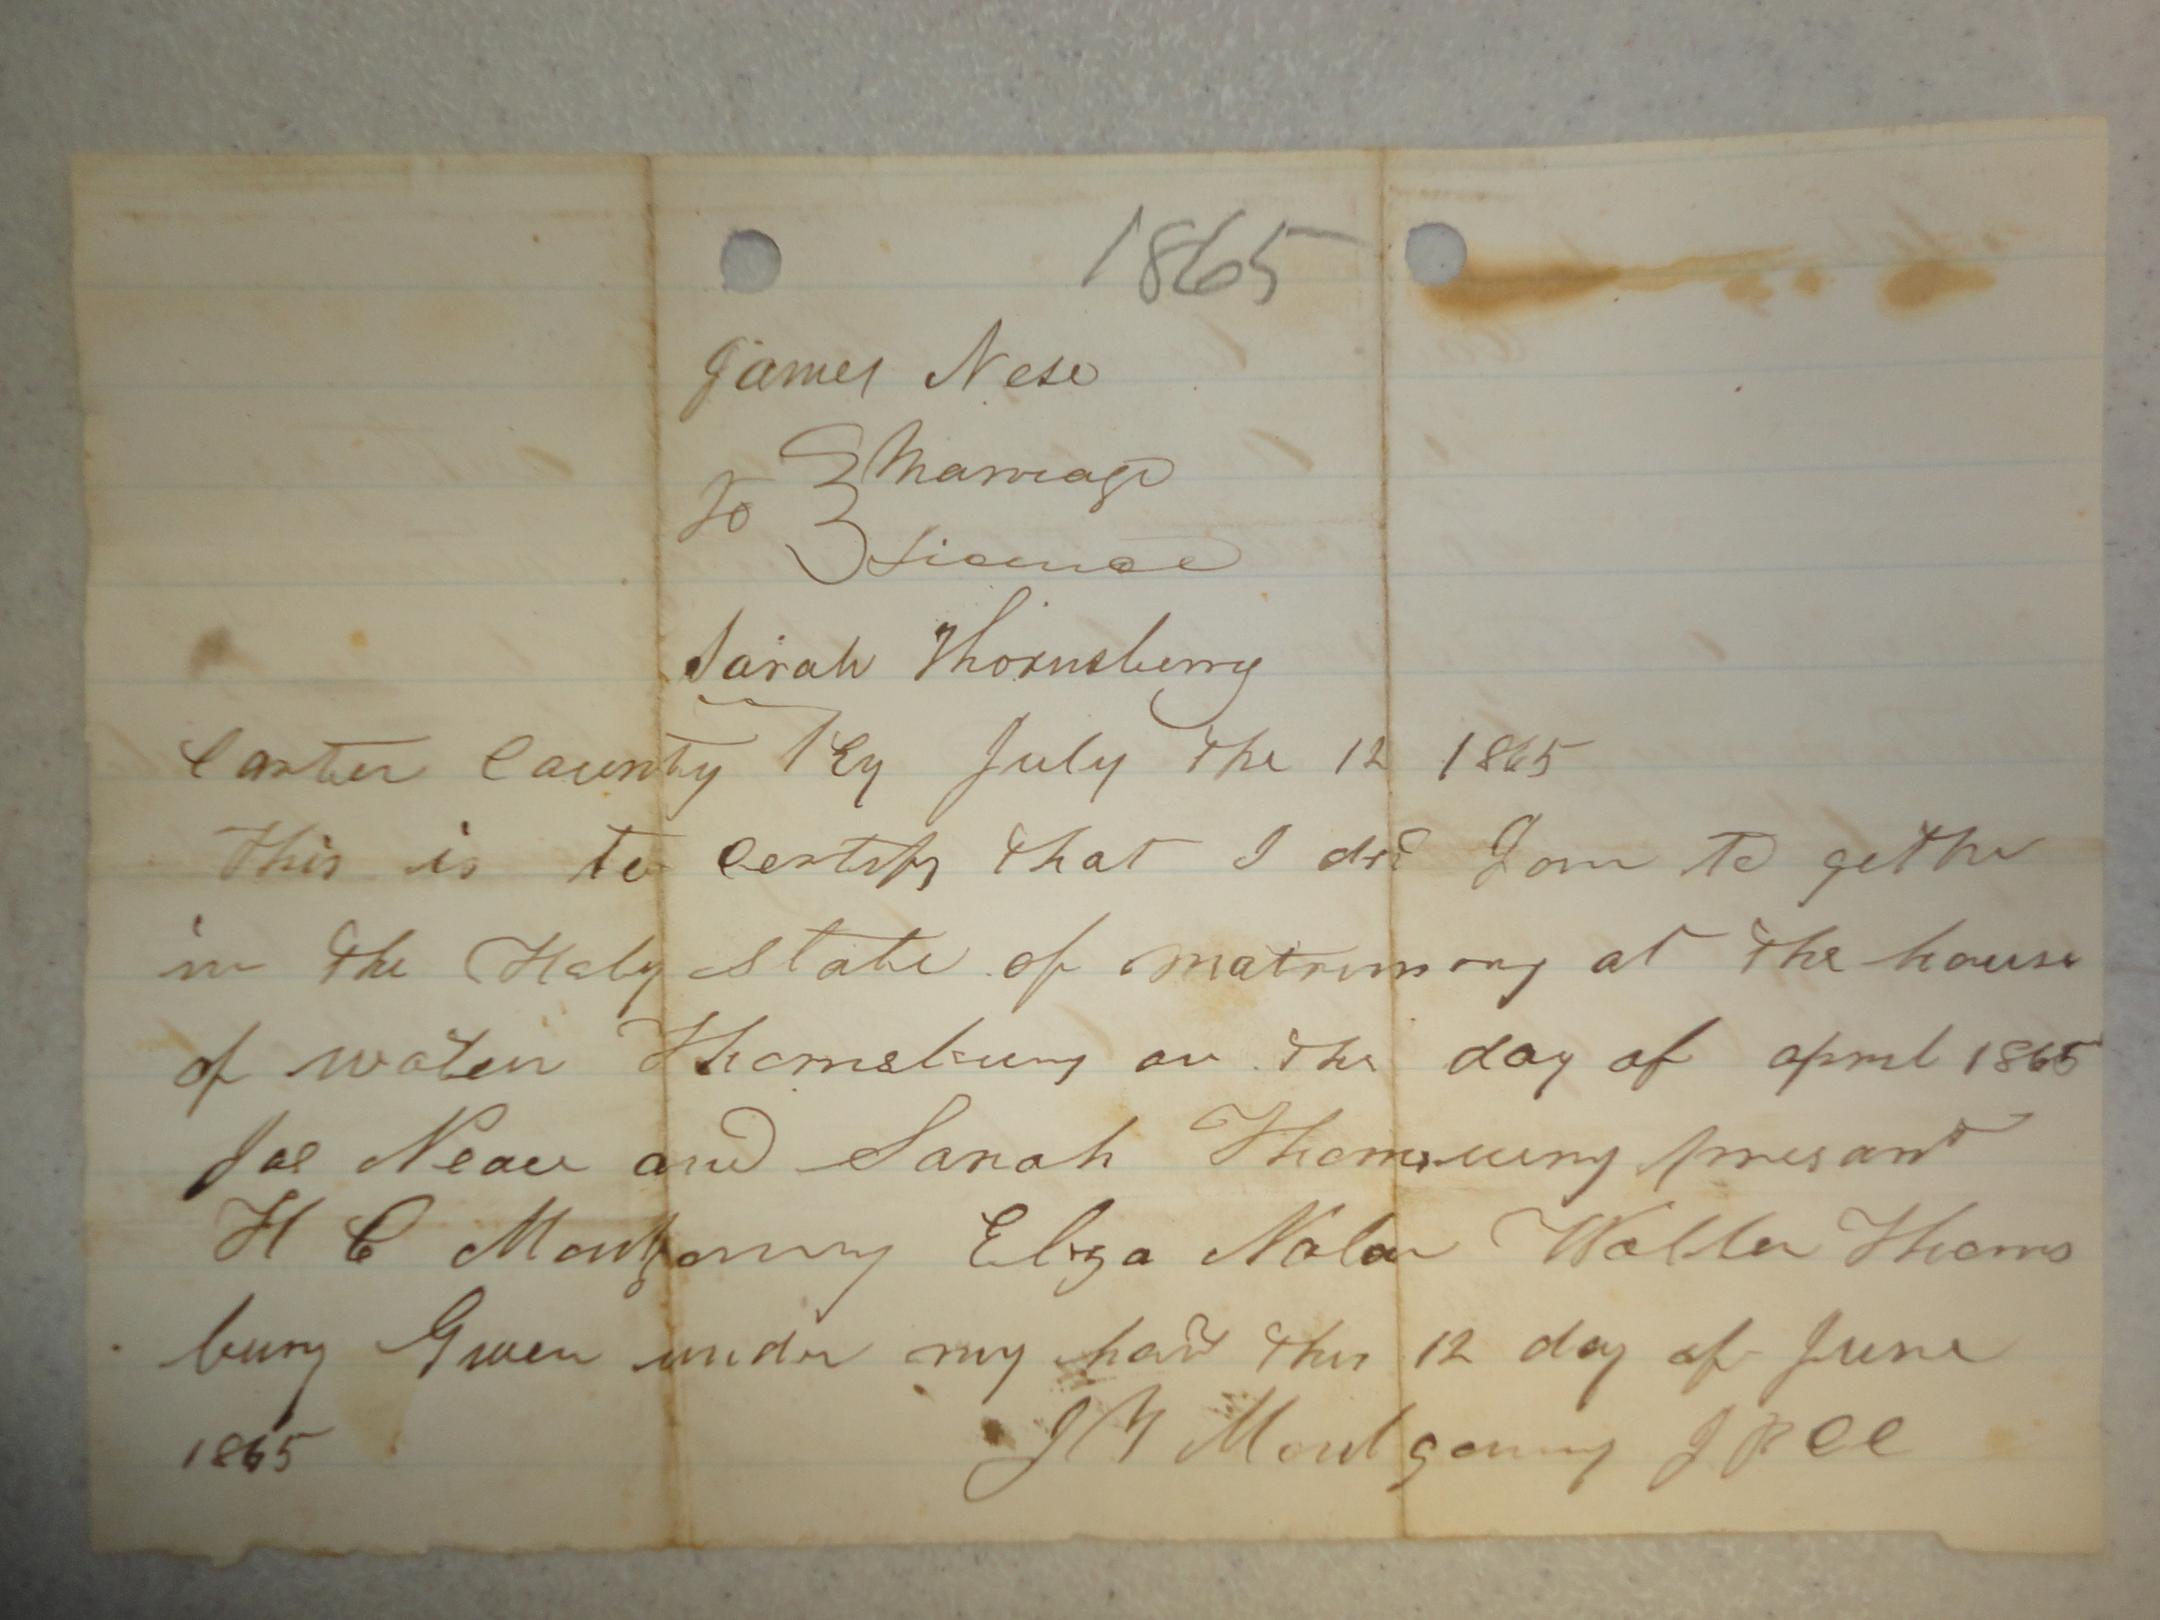 1865
James Nese
to Marriage
Licence
Sarah Thornsberry
Carter County Ky July the 12 1865
This is to certify that I did Join to gether
in the Holy state of matrimony at the house
of Thornsbury on the day of april 1865
and Sarah presant
H C Montgomry Eliza Nolan Walter Thorns
bury Given under my hand this 12 day of June
1865 Montgomry J P C C